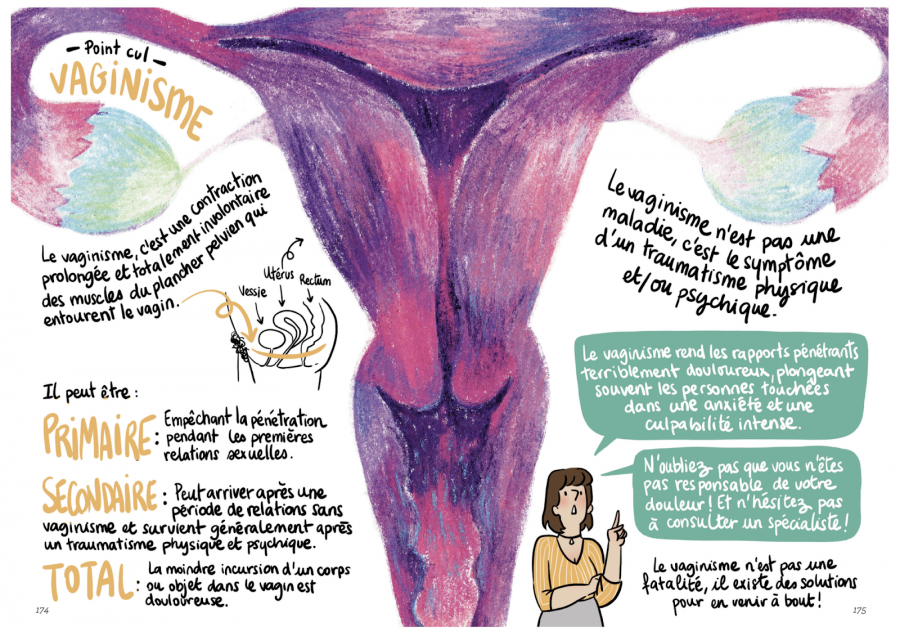 – Point cul –
VAGINISME
Le vaginisme, c'est une contraction
prolongée et totalement involontaire
des muscles du plancher pelvien qui
entourent le vagin.
Vessie
Utérus
Rectum
Il peut être :
PRIMAIRE : Empêchant la pénétration
pendant les premières
relations sexuelles.
SECONDAIRE : Peut arriver après une
période de relations sans
vaginisme et survient généralement après
un traumatisme physique et psychique.
TOTAL : La moindre incursion d'un corps
ou objet dans le vagin est
douloureuse.
174
Le vaginisme n'est pas une
maladie, c'est le symptôme
d'un traumatisme physique
et/ou psychique.
Le vaginisme rend les rapports pénétrants
terriblement douloureux, plongeant
souvent les personnes touchées
dans une anxiété et une
culpabilité intense.
N'oubliez pas que vous n'êtes
pas responsable de votre
douleur ! Et n'hésitez pas
à consulter un spécialiste !
Le vaginisme n'est pas une
fatalité, il existe des solutions
pour en venir à bout !
175